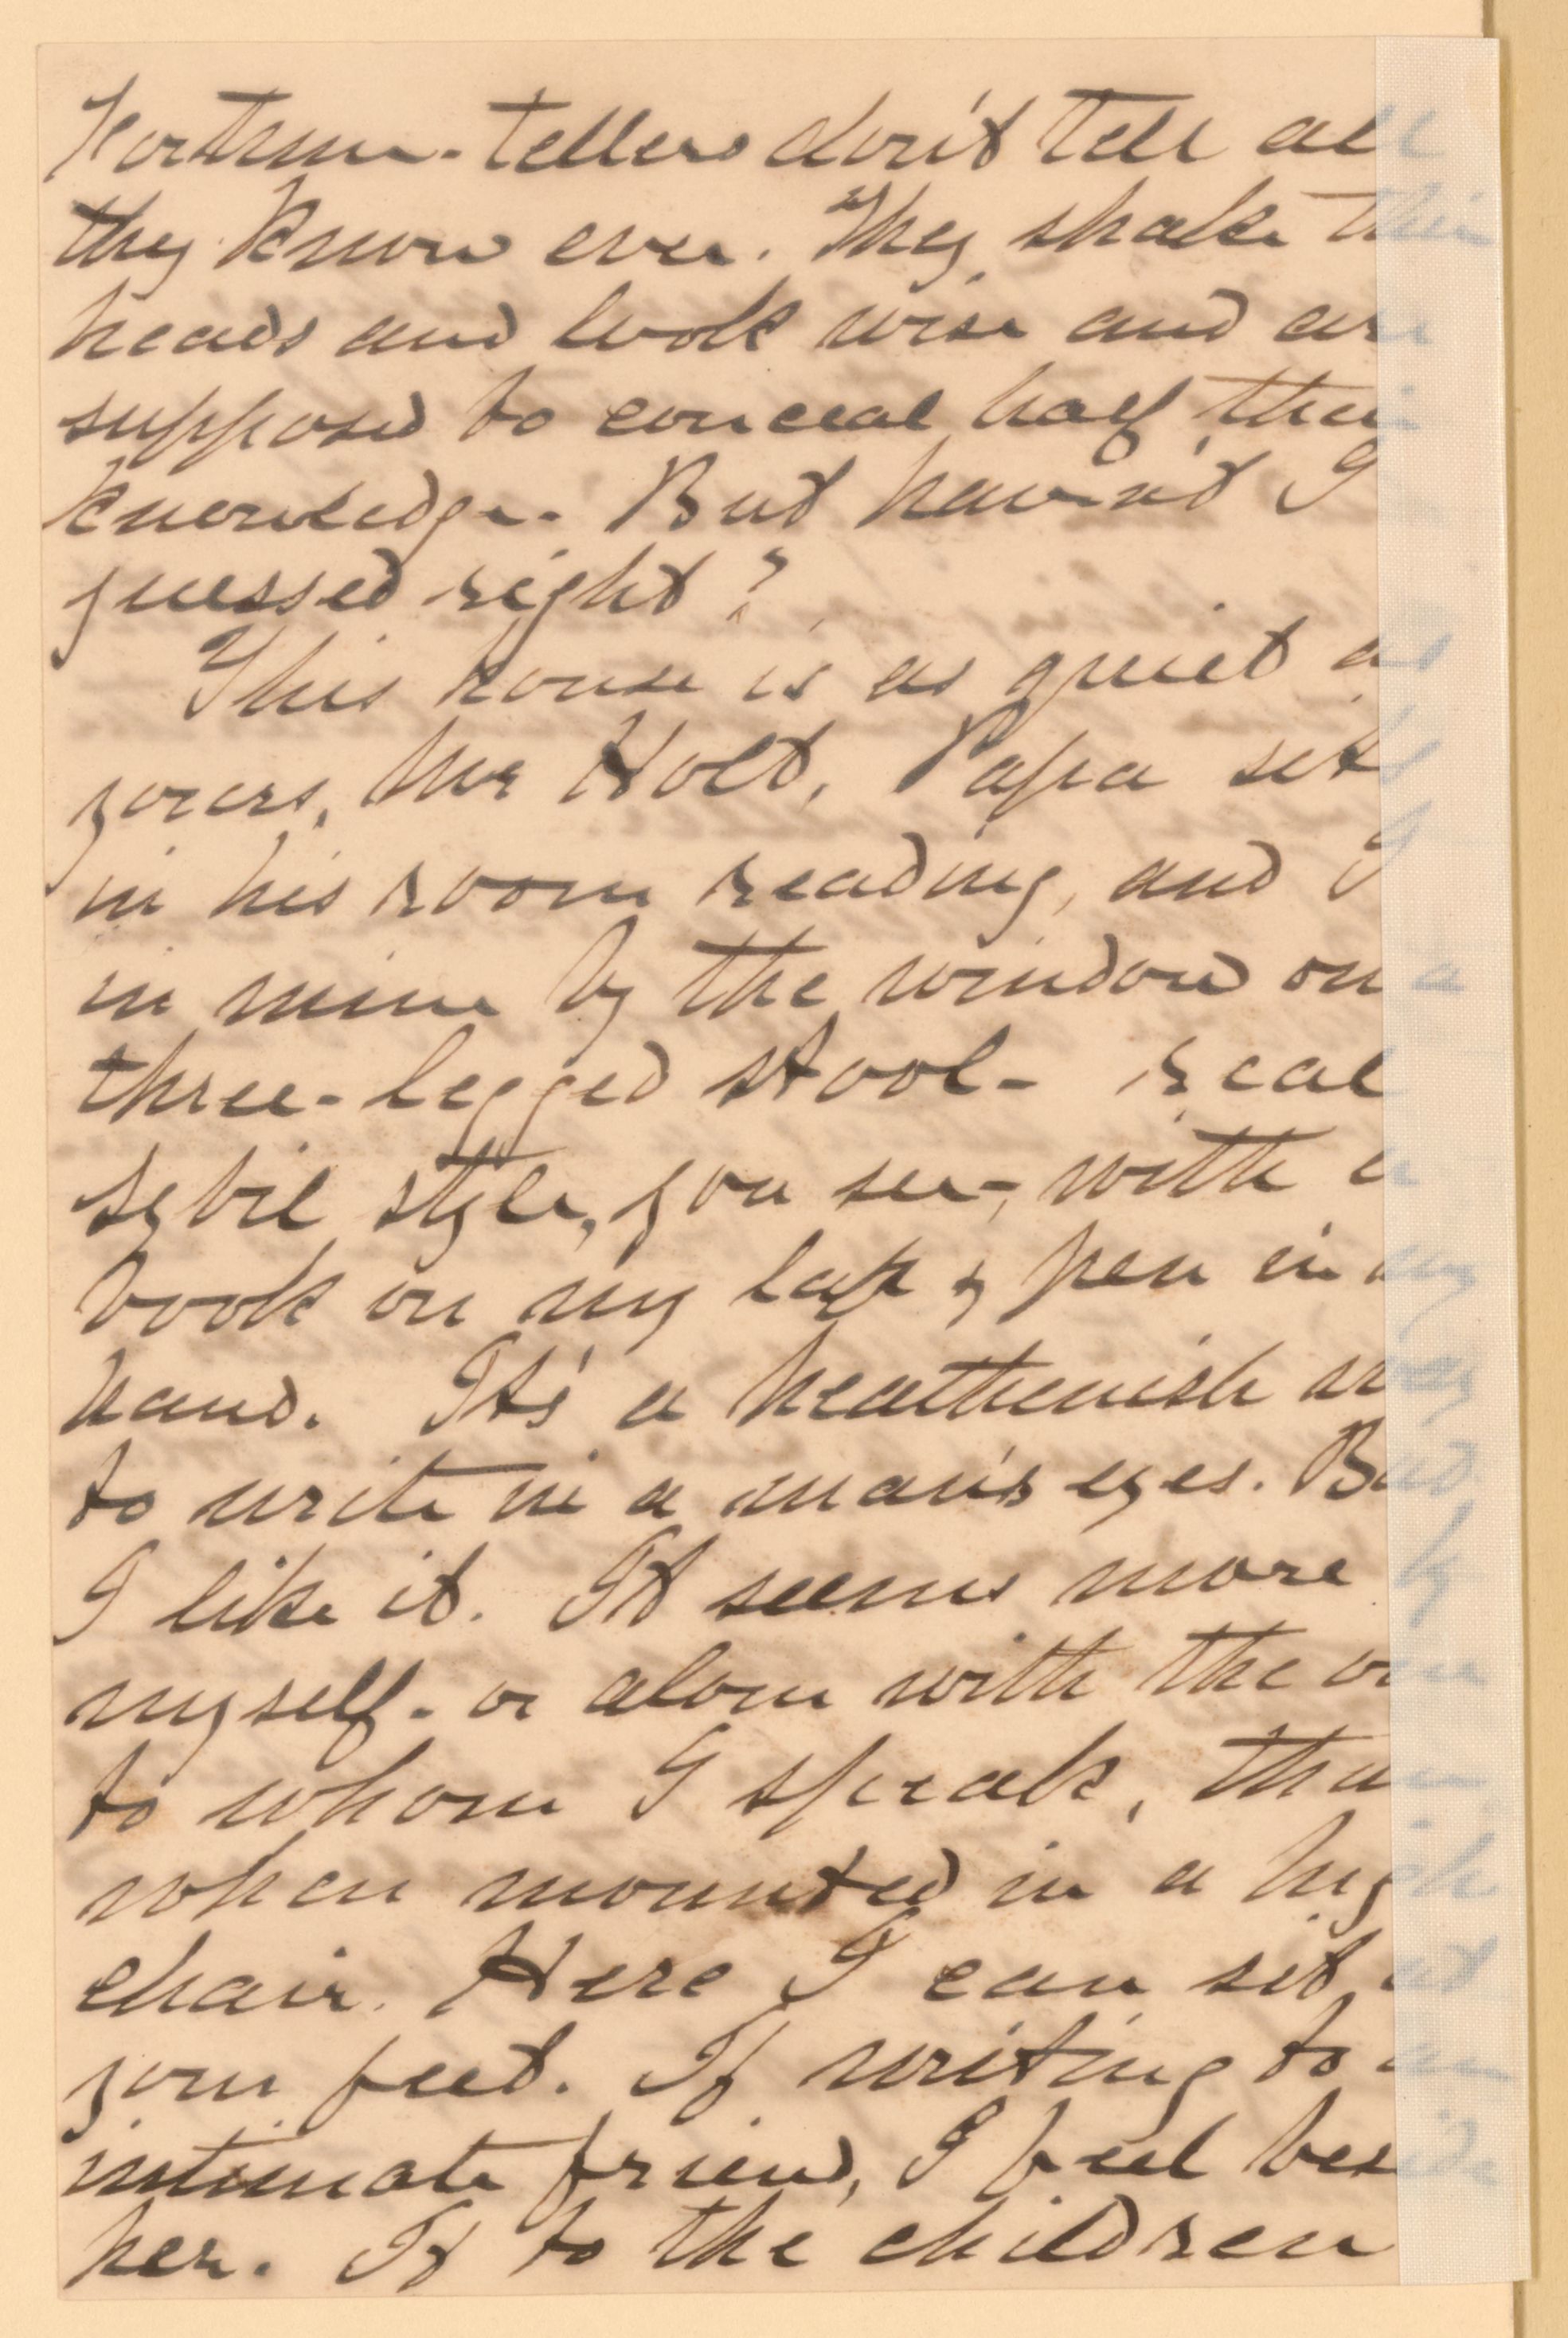 Fortune-tellers don't tell all
they know ever. They shake their
heads and look wise and are
supposed to conceal half their
knowledge. But have'nt I
guessed right?
This house is as quiet as
yours, Mr Holt, Papa sits
in his room reading, and I
in mine by the window on a
three-legged stool- real
sybil style, you see-, with a
book on my lap & pen in my
hand. It's a heathenish way
to write in a man's eyes. But,
I like it. It seems more by
myself- or alone with the one
to whom I speak, than
when mounted in a high
chair. Here I can sit at
your feet. If writing to an
intimate friend, I feel beside
her. If to the children